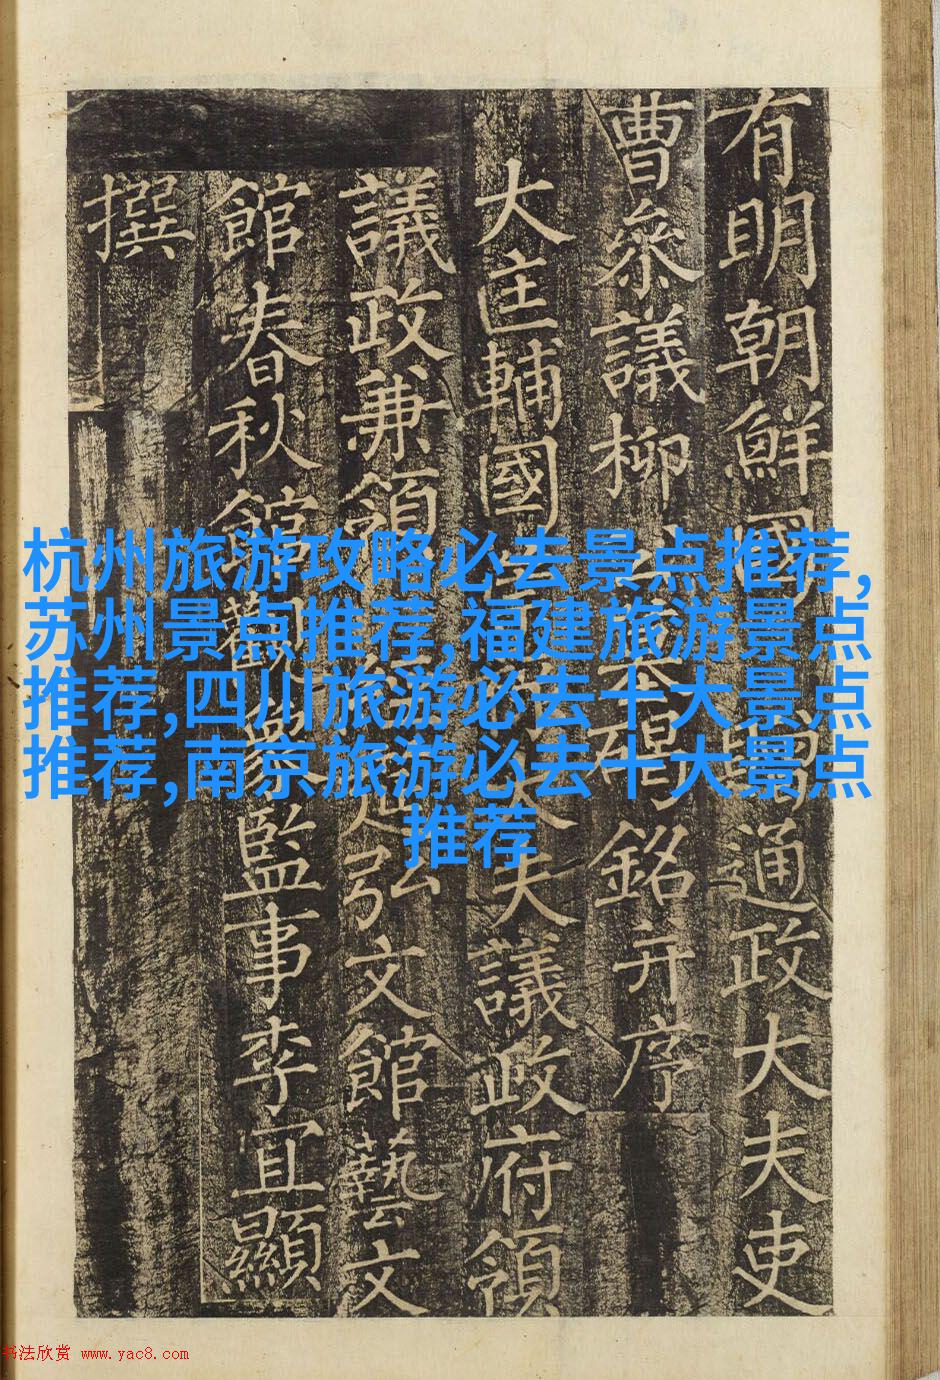 有明朝鮮國通政大夫吏
曹叅議柳銘并序
大匡輔國夫議政府領
議政兼領弘文館藝文
館春秋館觀象監事李宜顯
撰
杭州旅游攻略必去景点推荐,
苏州景点推荐,福建旅游景点
推荐,四川旅游必去十大景点
推荐,南京旅游必去十大景点
推荐
书法欣赏 www.yac8.com